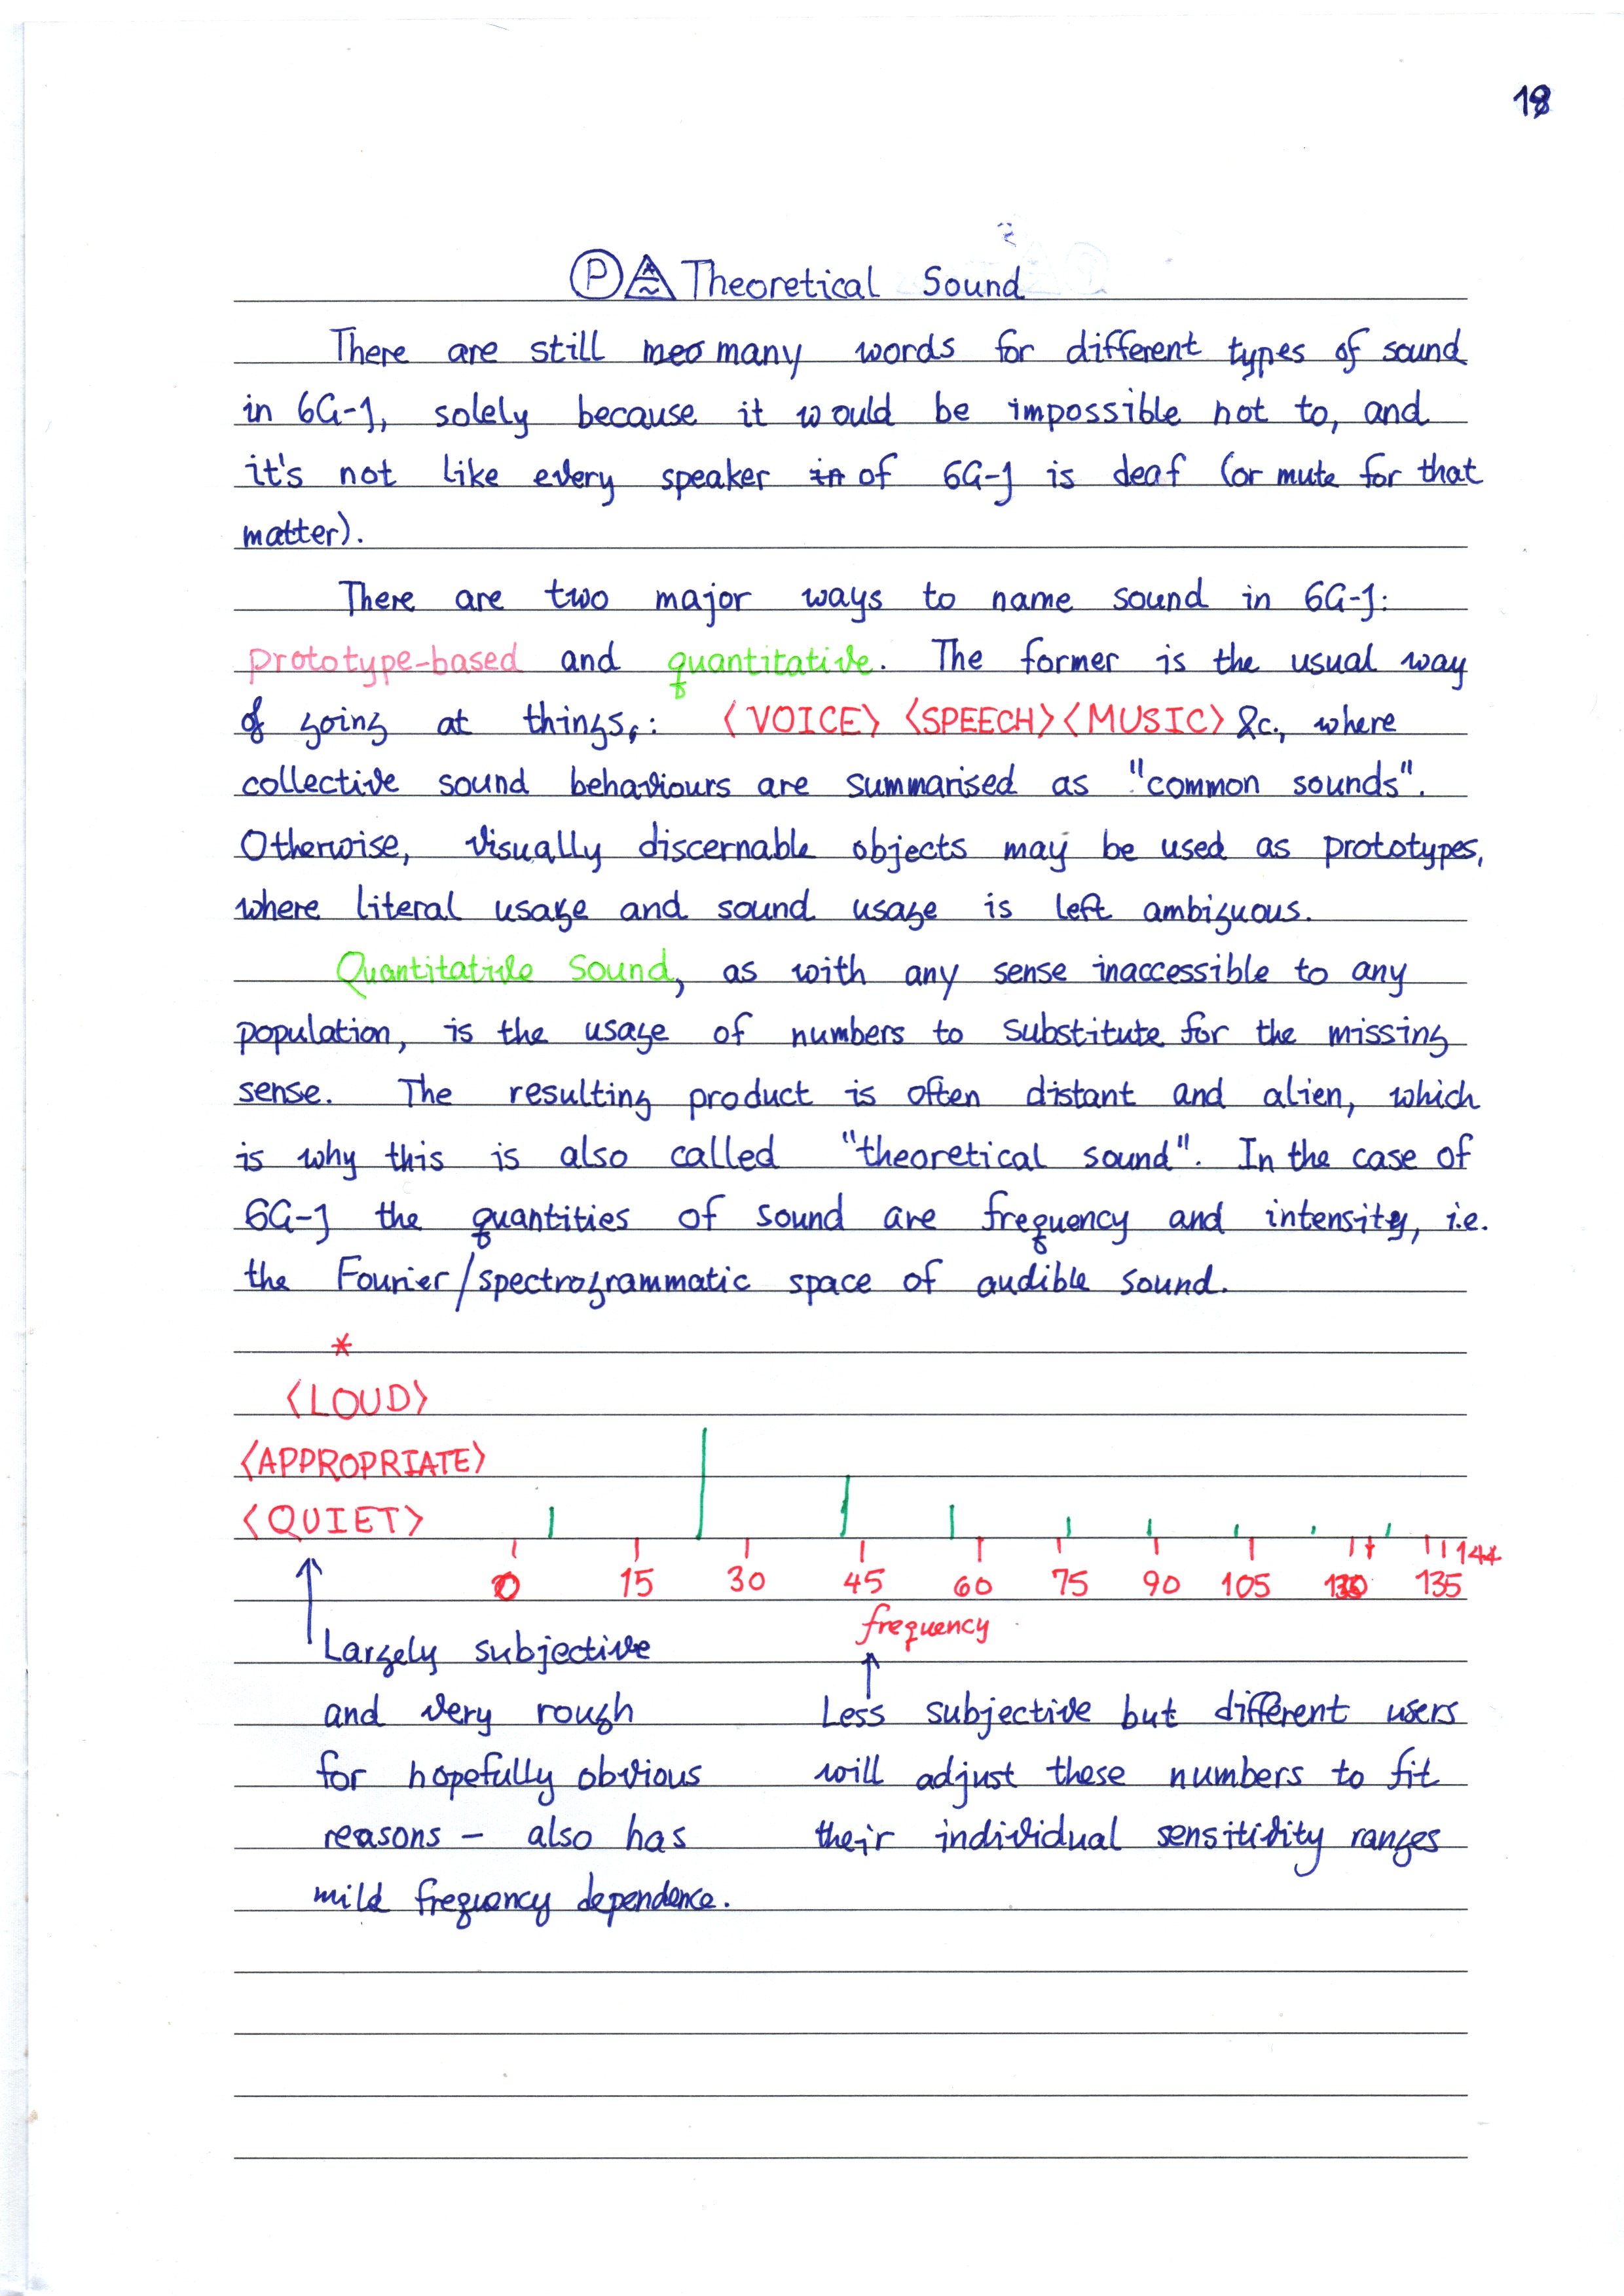 18
P Theoretical Sound
There are still meo many words for different types of sound
in 6G-1, solely because it would be impossible not to, and
it's not like every speaker in of 6G-1 is deaf (or mute for that
matter).
There are two major ways to name sound in 6G-1:
prototype-based and quantitative. The former is the usual way
of going at things,: ⟨VOICE⟩ ⟨SPEECH⟩ ⟨MUSIC⟩ &c., where
collective sound behaviours are summarised as "common sounds".
Otherwise, visually discernable objects may be used as prototypes,
where literal usage and sound usage is left ambiguous.
Quantitative Sound, as with any sense inaccessible to any
population, is the usage of numbers to substitute for the missing
sense. The resulting product is often distant and alien, which
is why this is also called "theoretical sound". In the case of
6G-1 the quantities of sound are frequency and intensity, i.e.
the Fourier/spectrogrammatic space of audible sound.
*
⟨LOUD⟩
⟨APPROPRIATE⟩
⟨QUIET⟩
0 15 30 45 60 75 90 105 135 144
frequency
Largely subjective
and very rough
for hopefully obvious
reasons – also has
mild frequency dependence.
Less subjective but different users
will adjust these numbers to fit
their individual sensitivity ranges